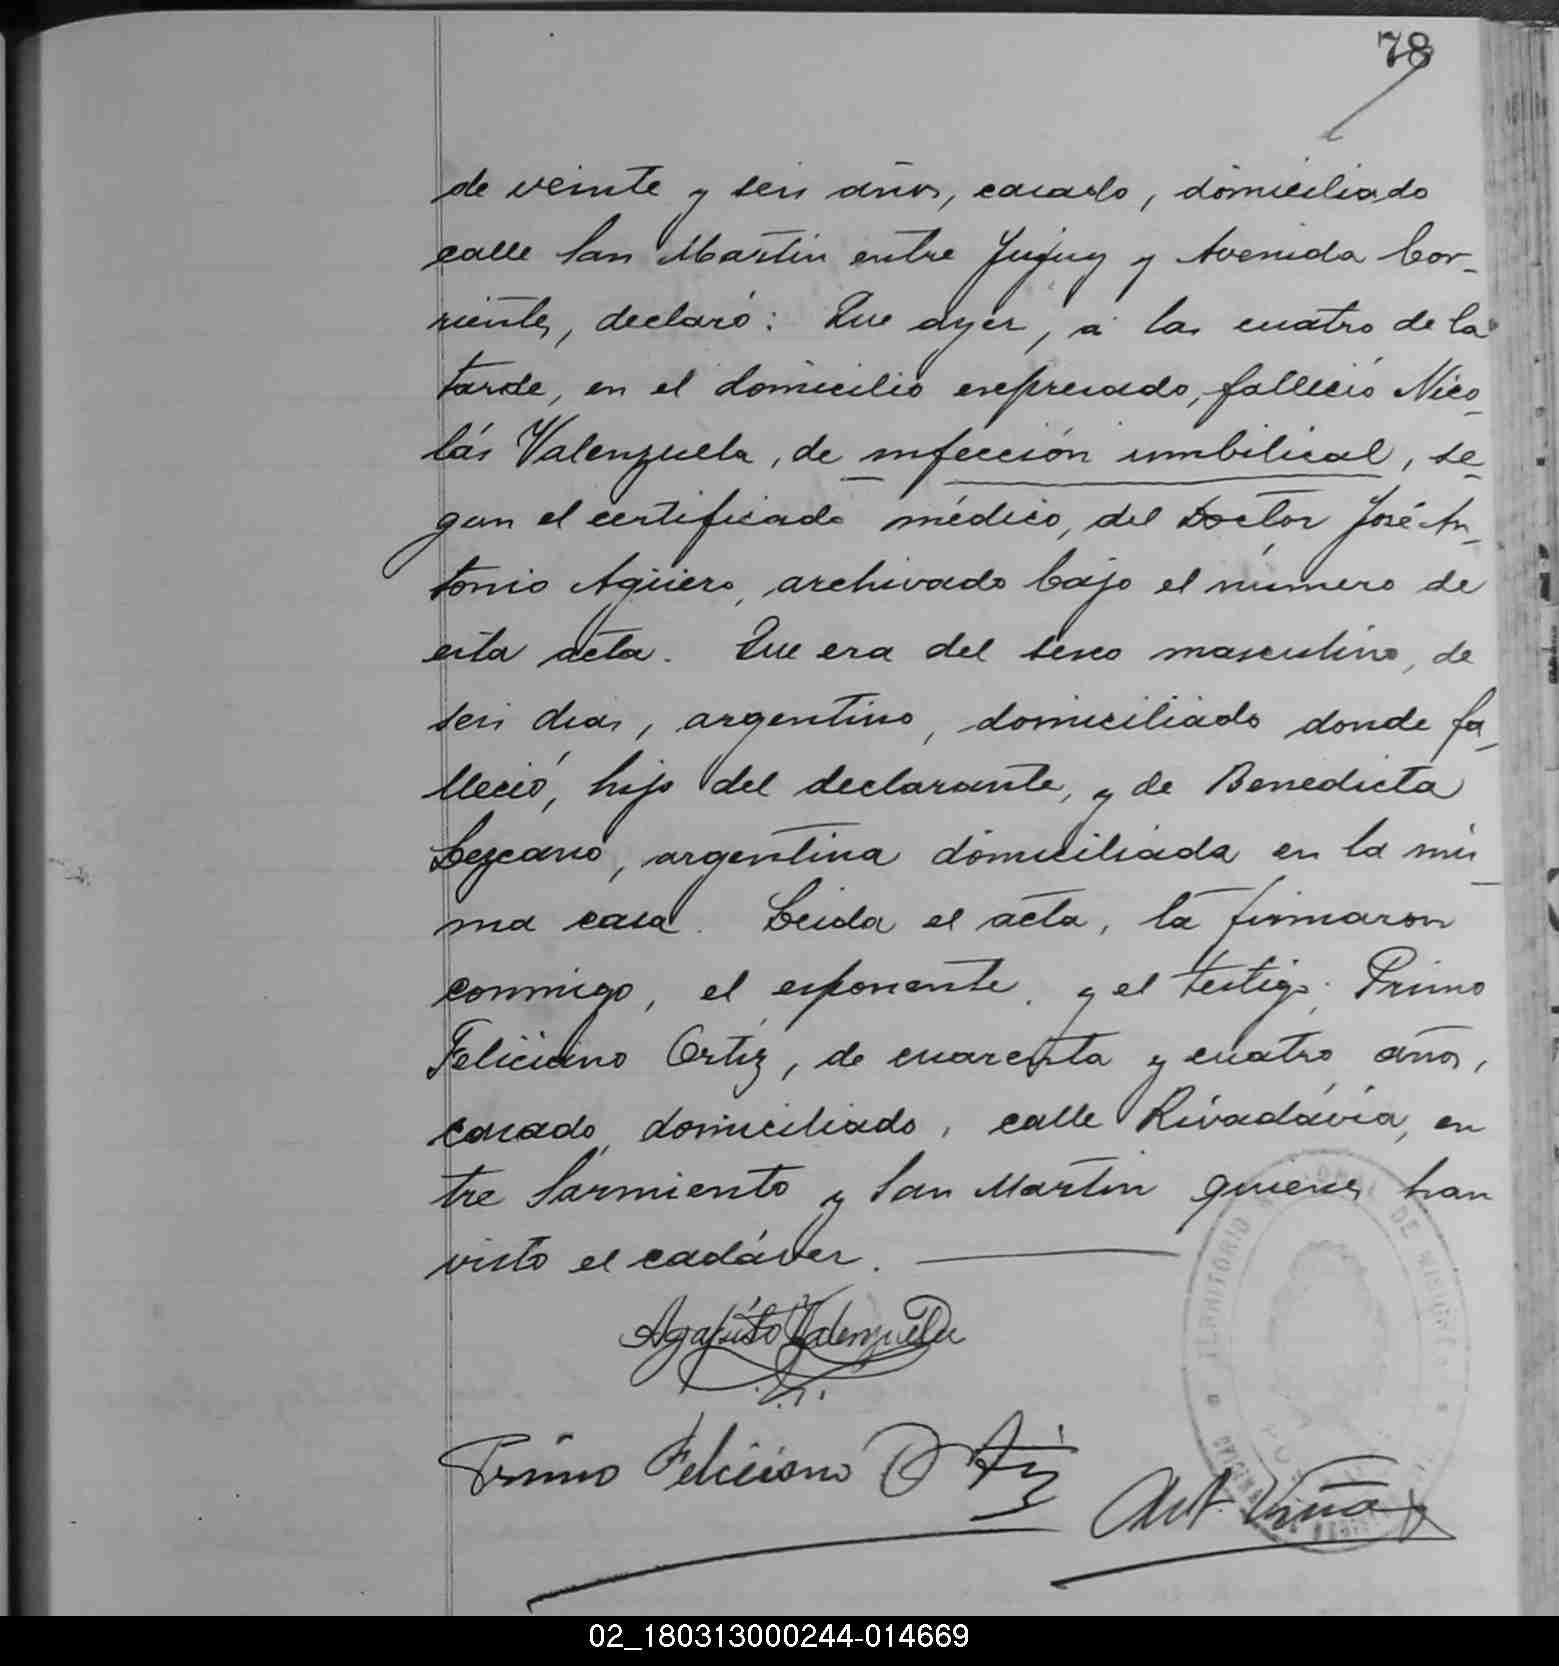 78
de veinte y seis años, casado, domiciliado
calle San Martin entre Jujuy y Avenida Cor-
rientes, declaró: Que ayer, á las cuatro de la
tarde, en el domicilio expresado, falleció Nico-
lás Valenzuela, de infección umbilical, se-
gun el certificado médico, del Doctor José An-
tonio Agüero, archivado bajo el número de
esta acta. Que era del sexo masculino, de
seis dias, argentino, domiciliado donde fa-
lleció, hijo del declarante, y de Benedicta
Lezcano, argentina domiciliada en la mis-
ma casa. Leida el acta, la firmaron
conmigo, el exponente, y el testigo: Primo
Feliciano Ortiz, de cuarenta y cuatro años,
casado, domiciliado, calle Rivadavia, en
tre Sarmiento y San Martin quienes han
visto el cadáver.
Agapito Valenzuela
TERRITORIO NACIONAL DE MISIONES
Primo Feliciano Ortiz
Ant. Viña
02_180313000244-014669